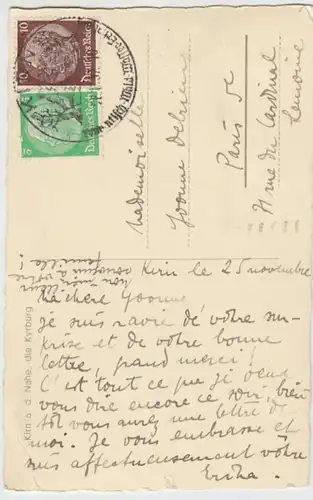 10 10
Deutsches Reich
6
Deutsches Reich
Mademoiselle
Yvonne
Paris 5e
71 rue du Cardinal
Lemoine
Kirn le 25 novembre
Ma chère Yvonne
je suis ravie de votre sur-
krise et de votre bonne
lettre, grand merci!
C'est tout ce que je veux
vous dire encore ce soir, bien
tôt vous aurez une lettre de
moi. Je vous embrasse et
suis affectueusement votre
Erika.
à votre
famille!
Kirn a. d. Nahe, die Kyrburg